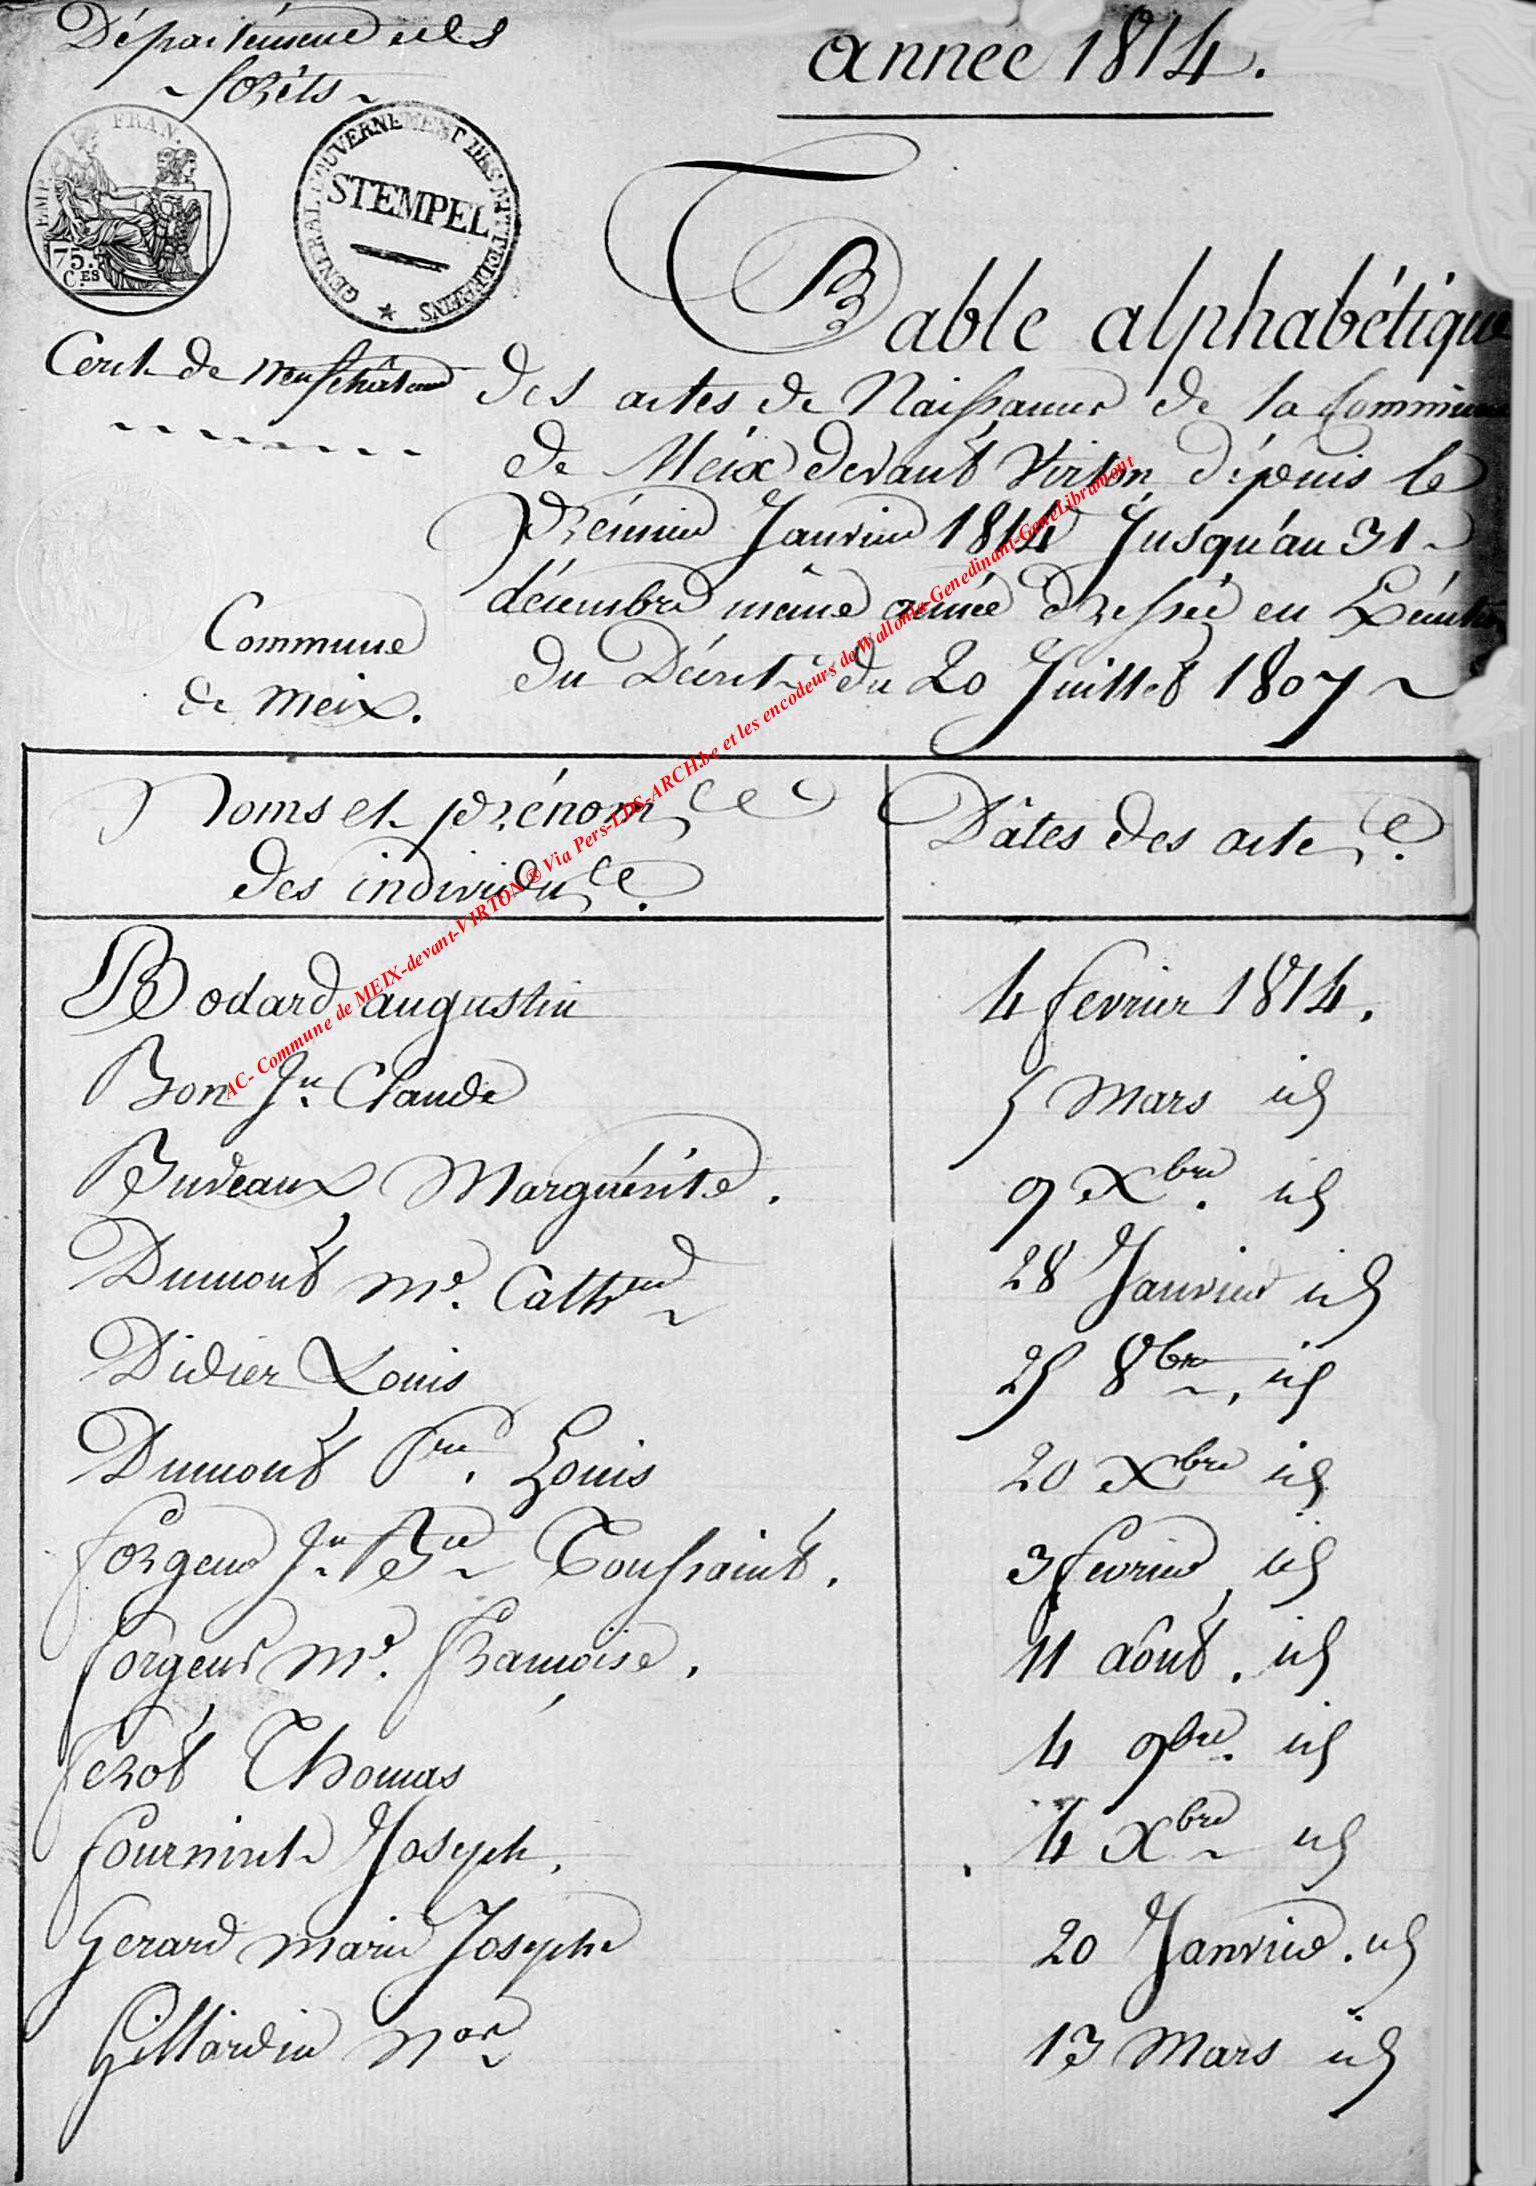 Département des
~ forêts ~
année 1814.
EMP. FRAN.
75.
C.ES
GENERAL GOUVERNEMENT DES MITTELRHEINS
STEMPEL
Table alphabétique
Cont. de Neufchâteau
des actes de Naissances de la Commune
de Meix devant Virton depuis le
Prémier Janvier 1814 Jusqu'au 31 ~
décembre même année dressée en
du Décret du 20 Juillet 1807 ~
Commune
de Meix.
AC- Commune de MEIX-devant-VIRTON® Via Pers-LDS-ARCH.be et les encodeurs de Wallonia-Genedinant-GeneLibramont
Noms et prénoms
des individus.
Dâtes des actes.
Bodard augustin 4 fevrier 1814.
Bon Jn. Claude 5 Mars id
Budeaux Marguérite. 9 Xbre. id
Dumont Me. Cathne 28 Janvier id
Didier Louis 25 8bre, id
Dumont Pre. Louis 20 Xbre id
forgeur Jn. Bte Toussaint. 3 fevrier id
forgeur Me. françoise. 11 août. id
ferot Thomas 4 9bre. id
fourniret Joseph. 4 Xbre id
Gerard marie Joseph 20 Janvier. id
Gillardin Nas 13 Mars id